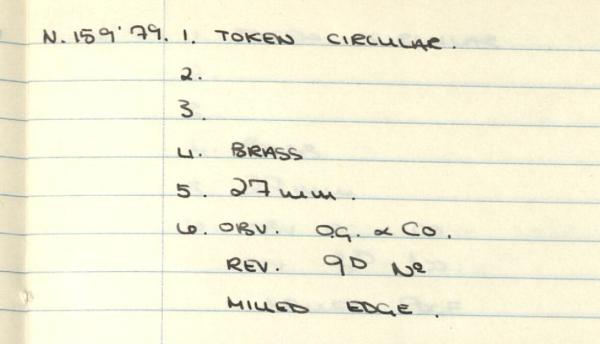 N. 159'79. 1. TOKEN CIRCULAR.
2.
3.
4. BRASS
5. 27mm.
6. OBV. O.G. & Co.
REV. 9D No
MILLED EDGE.